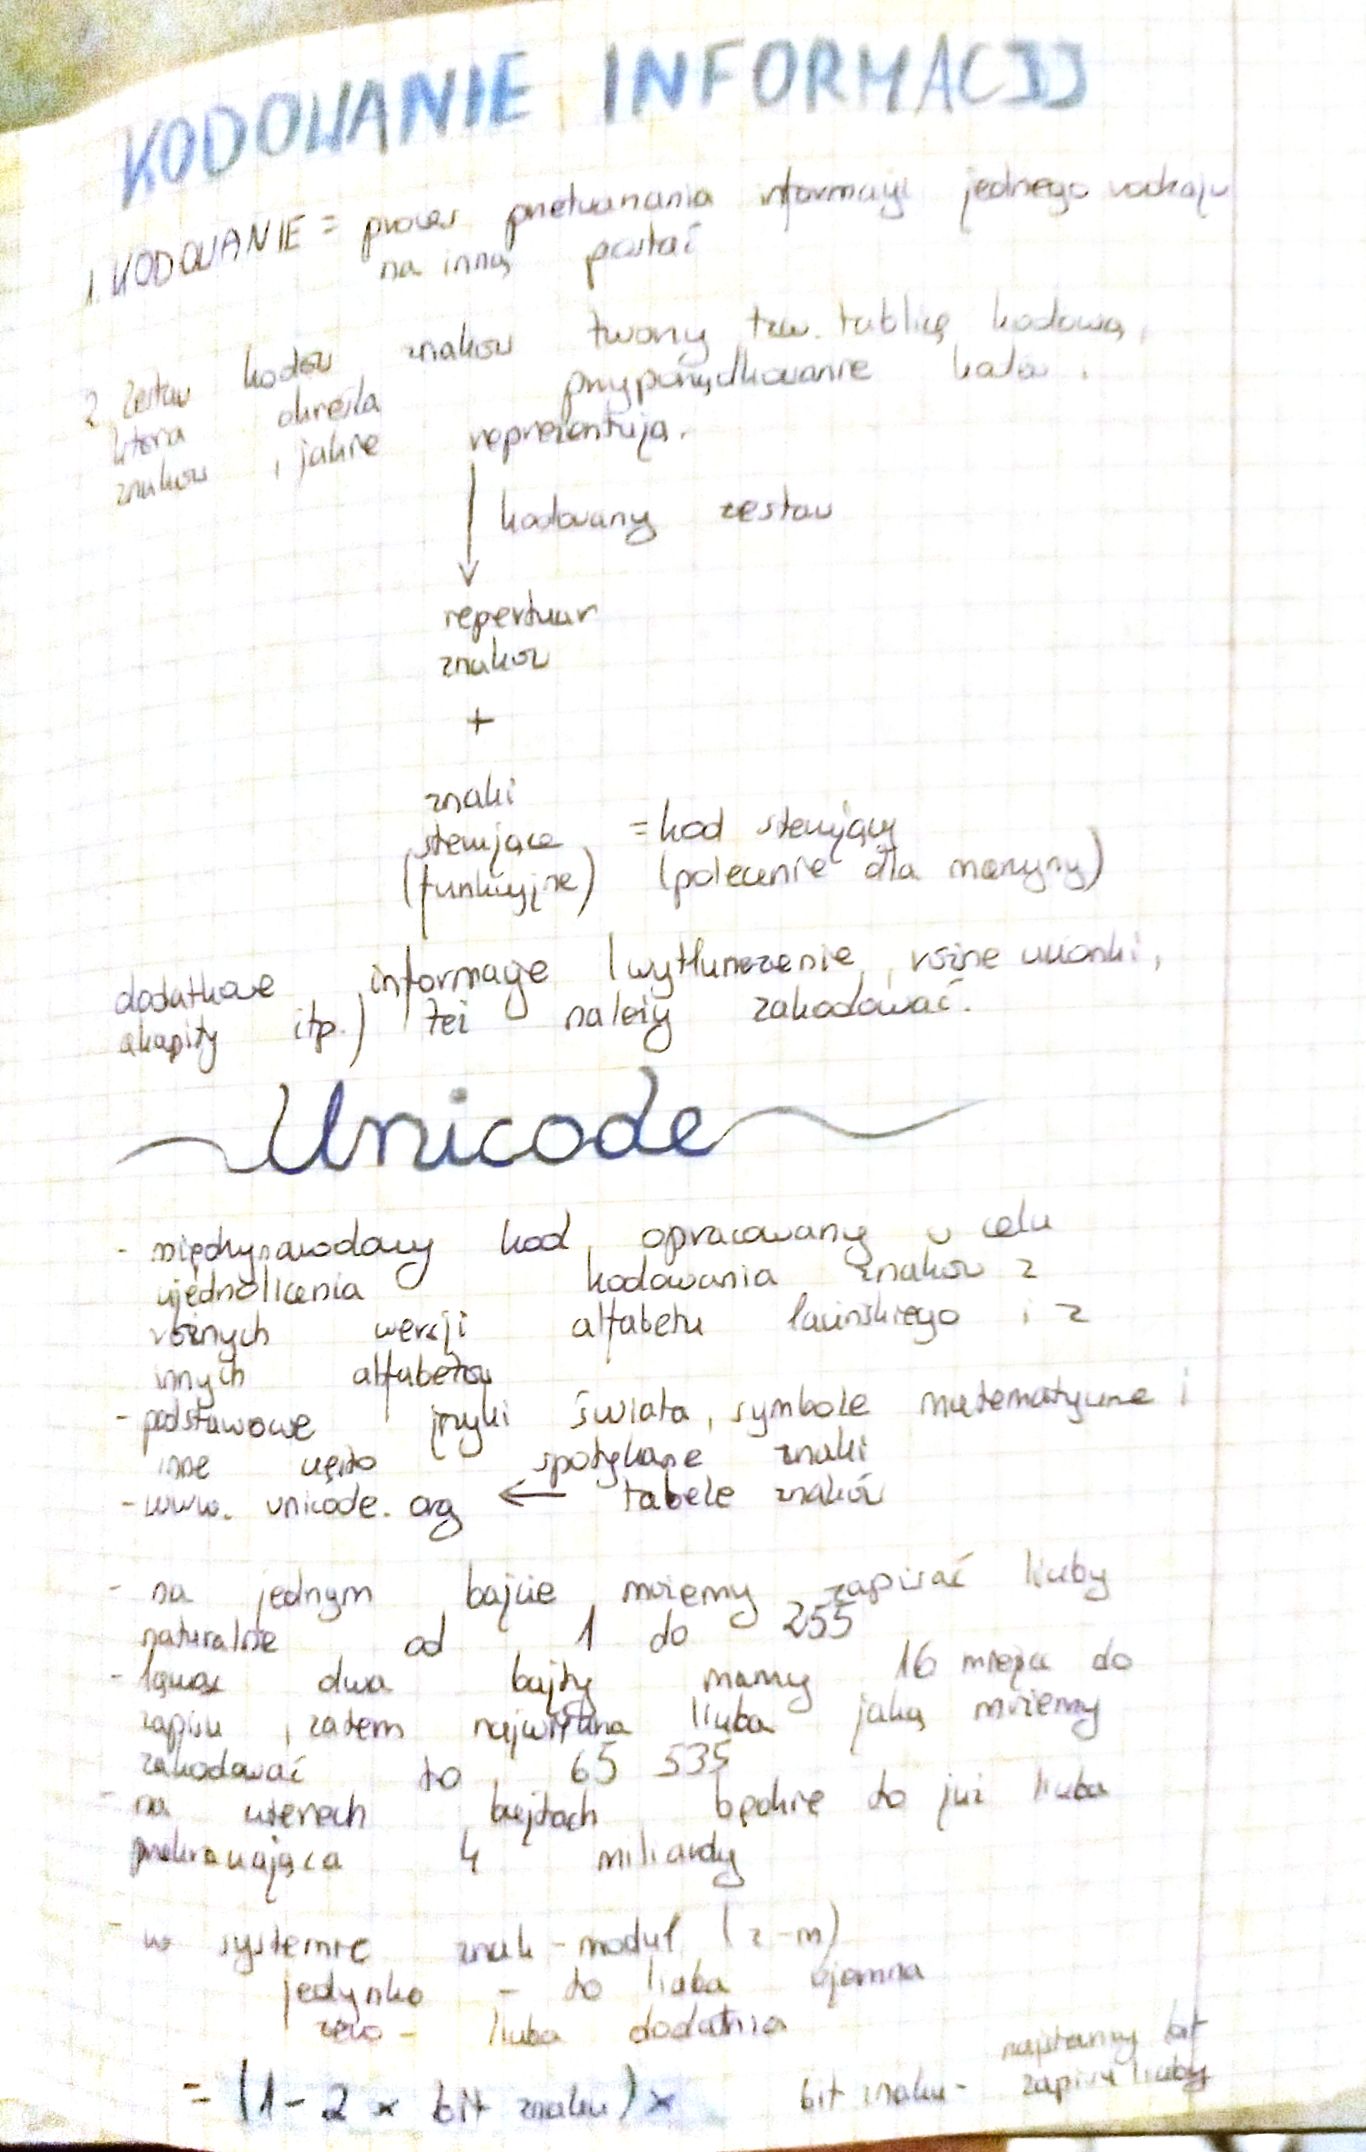 KODOWANIE INFORMACJJ
1. KODOWANIE = proces przetwarzania informacji jednego rodzaju
na inną postać
2. Zestaw kodów znaków tworzy tzw. tablicę kodową,
która określa przyporządkowanie kodów i
znaków, jakie reprezentują.
kodowany zestaw
repertuar
znaków
+
znaki
sterujące = kod sterujący
(funkcyjne) (polecenie dla maszyny)
dodatkowe informacje (wytłuszczenie, różne czcionki,
akapity itp.) też należy zakodować.
Unicode
- międzynarodowy kod, opracowany w celu
ujednolicenia kodowania znaków z
różnych wersji alfabetu łacińskiego i z
innych alfabetów
- podstawowe języki świata, symbole matematyczne i
inne często spotykane znaki
- www.unicode.org ← tabele znaków
- na jednym bajcie możemy zapisać liczby
naturalne od 1 do 255
- łącząc dwa bajty mamy 16 miejsc do
zapisu, zatem największa liczba jaką możemy
zakodować to 65 535
- na czterech bajtach będzie to już liczba
przekraczająca 4 miliardy
- w systemie znak-moduł (z-m)
jedynka - to liczba ujemna
zero - liczba dodatnia
= (1-2 × bit znaku) × bit znaku - najstarszy bit
zapisu liczby